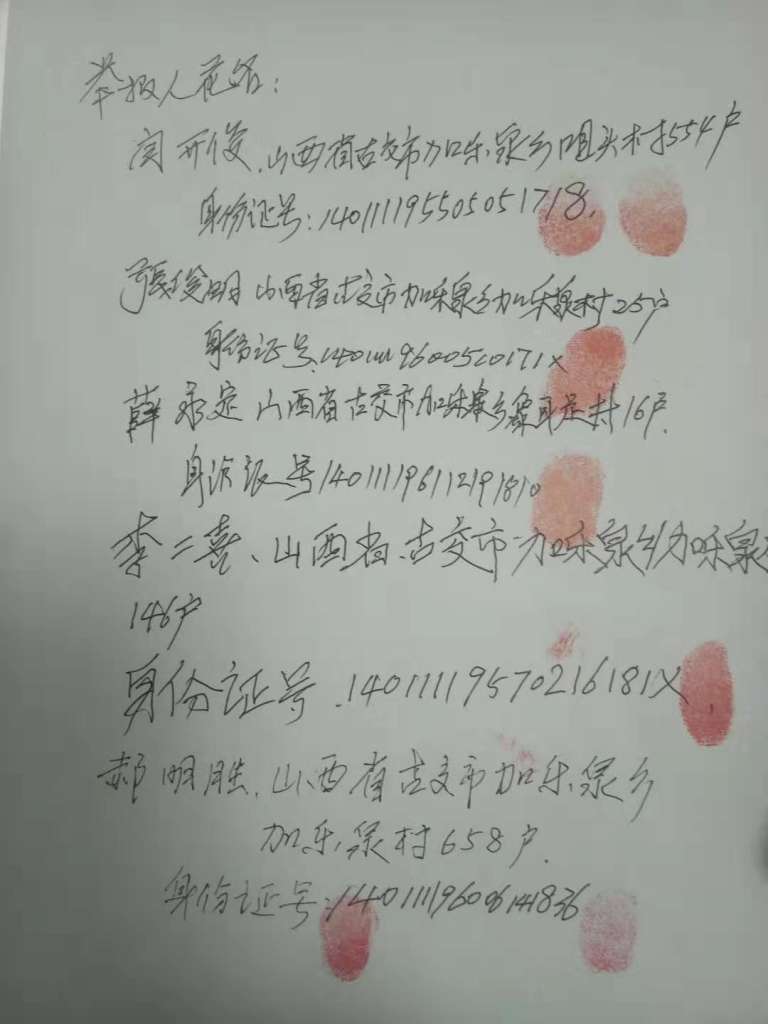 举报人花名:
闫开俊.山西省古交市加乐泉乡咀头村554户
身份证号:140111195505051718.
張俊明 山西省古交市加乐泉乡加乐泉村25户
身份证号.14011119600510171X
薛永定 山西省古交市加乐泉乡泉耳足村16户.
身份证号140111196112191810
李二喜、山西省.古交市加乐泉乡加乐泉村
146户
身份证号.14011119570216181X
郝明胜.山西省古交市加乐泉乡
加乐泉村658户.
身份证号:140111196006141836